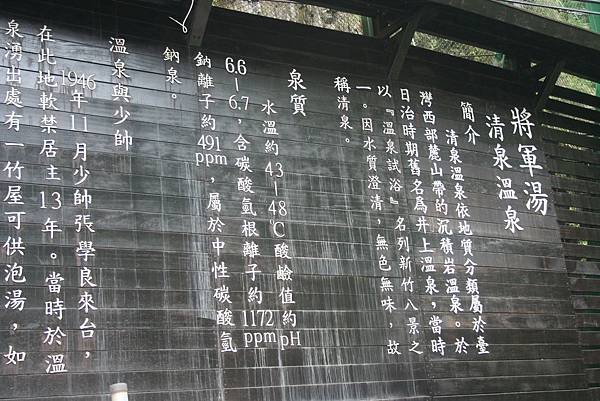 將軍湯
清泉溫泉
簡介
清泉溫泉依地質分類屬於臺
灣西部麓山帶的沉積岩溫泉。於
日治時期舊名為井上溫泉，當時
以『溫泉試浴』名列新竹八景之
一。因水質澄清，無色無味，故
稱清泉。
泉質
水溫約43－48℃酸鹼值約pH
6.6－6.7，含碳酸氫根離子約1172ppm
鈉離子約491ppm，屬於中性碳酸氫
鈉泉。
溫泉與少帥
1946年11月少帥張學良來台，
在此地軟禁居主13年。當時於溫
泉湧出處有一竹屋可供泡湯，如